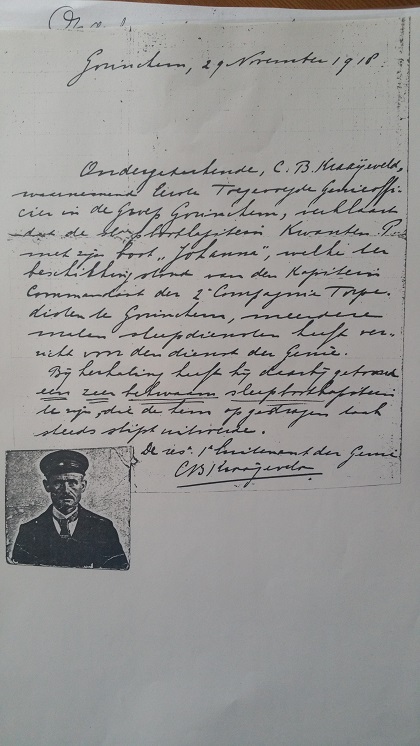 Gorinchem, 29 November 1918.
Ondergeteekende, C. B. Kraaijeveld,
waarnemend Eerste Toegevoegde Genieoffi-
cier in de Groep Gorinchem, verklaart
dat de sleepbootkapitein Kwanten P.
met zijn boot "Johanna", welke ter
beschikking stond van den Kapitein
Commandant der 2e Compagnie Torpe-
disten te Gorinchem, meerdere
malen sleepdiensten heeft ver-
richt voor den dienst der Genie.
Bij herhaling heeft hij daarbij getoond
een zeer bekwaam sleepbootkapitein
te zijn, die de hem opgedragen taak
steeds stipt uitvoerde.
De res. 1e luitenant der Genie
CBKraaijeveld